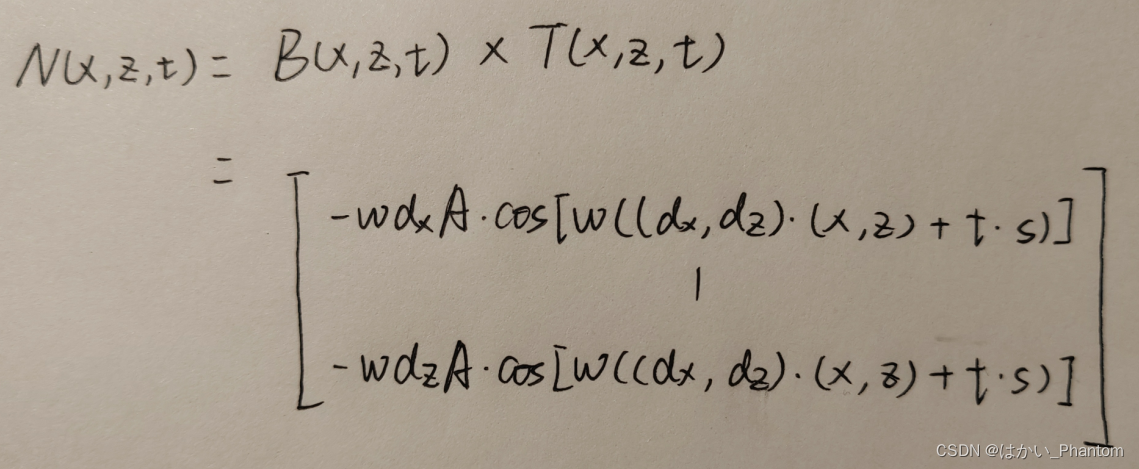 N(x,z,t) = B(x,z,t) × T(x,z,t)
= [ -wdxA·cos[w((dx,dz)·(x,z)+t·s)]
1
-wdzA·cos[w((dx,dz)·(x,z)+t·s)] ]
CSDN @はかい_Phantom